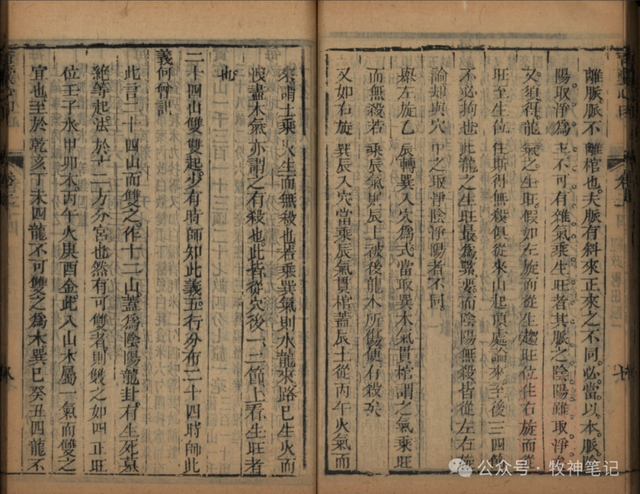 離脈脈不離棺也夫脈有斜來正來之不同必當以本脈陰
陽取淨爲主不可有雜氣乘生旺者其脈之陰陽雖取淨
又須得龍氣之生旺假如左旋而從生起旺位住右旋而從
旺至生位住斯得無殺俱從來山起頭處論來至後三四節
論却與穴中之取陰淨陽者不同
龍氣之生旺最爲緊要而陰陽無殺皆從左右旋
如左旋乙辰轉巽入穴爲式當取巽木氣貫棺謂之氣乘旺
而無殺若棄巽氣則辰上被後龍木所傷便有殺矣
又如右旋巽辰入穴當乘辰氣貫棺蓋辰土從丙午火氣而
來謂土乘火生而無殺也若乘巽氣則水龍來路已生火而
洩盡木氣亦謂之有殺也此者從穴後一二節上看生旺者
也
二十四山雙雙起少有時師知此義五行分布二十四時師此
義何曾記
此言二十四山而雙之作十二山蓋爲陰陽龍封有生死墓
絶等起法於十二方分宮也然有可雙者則雙之如四正旺
位壬子水甲卯木丙午火庚酉金此八山本屬一氣而雙之
宜也至於乾亥丁未四龍不可雙之爲木巽巳癸丑四龍不
公众号·牧神笔记